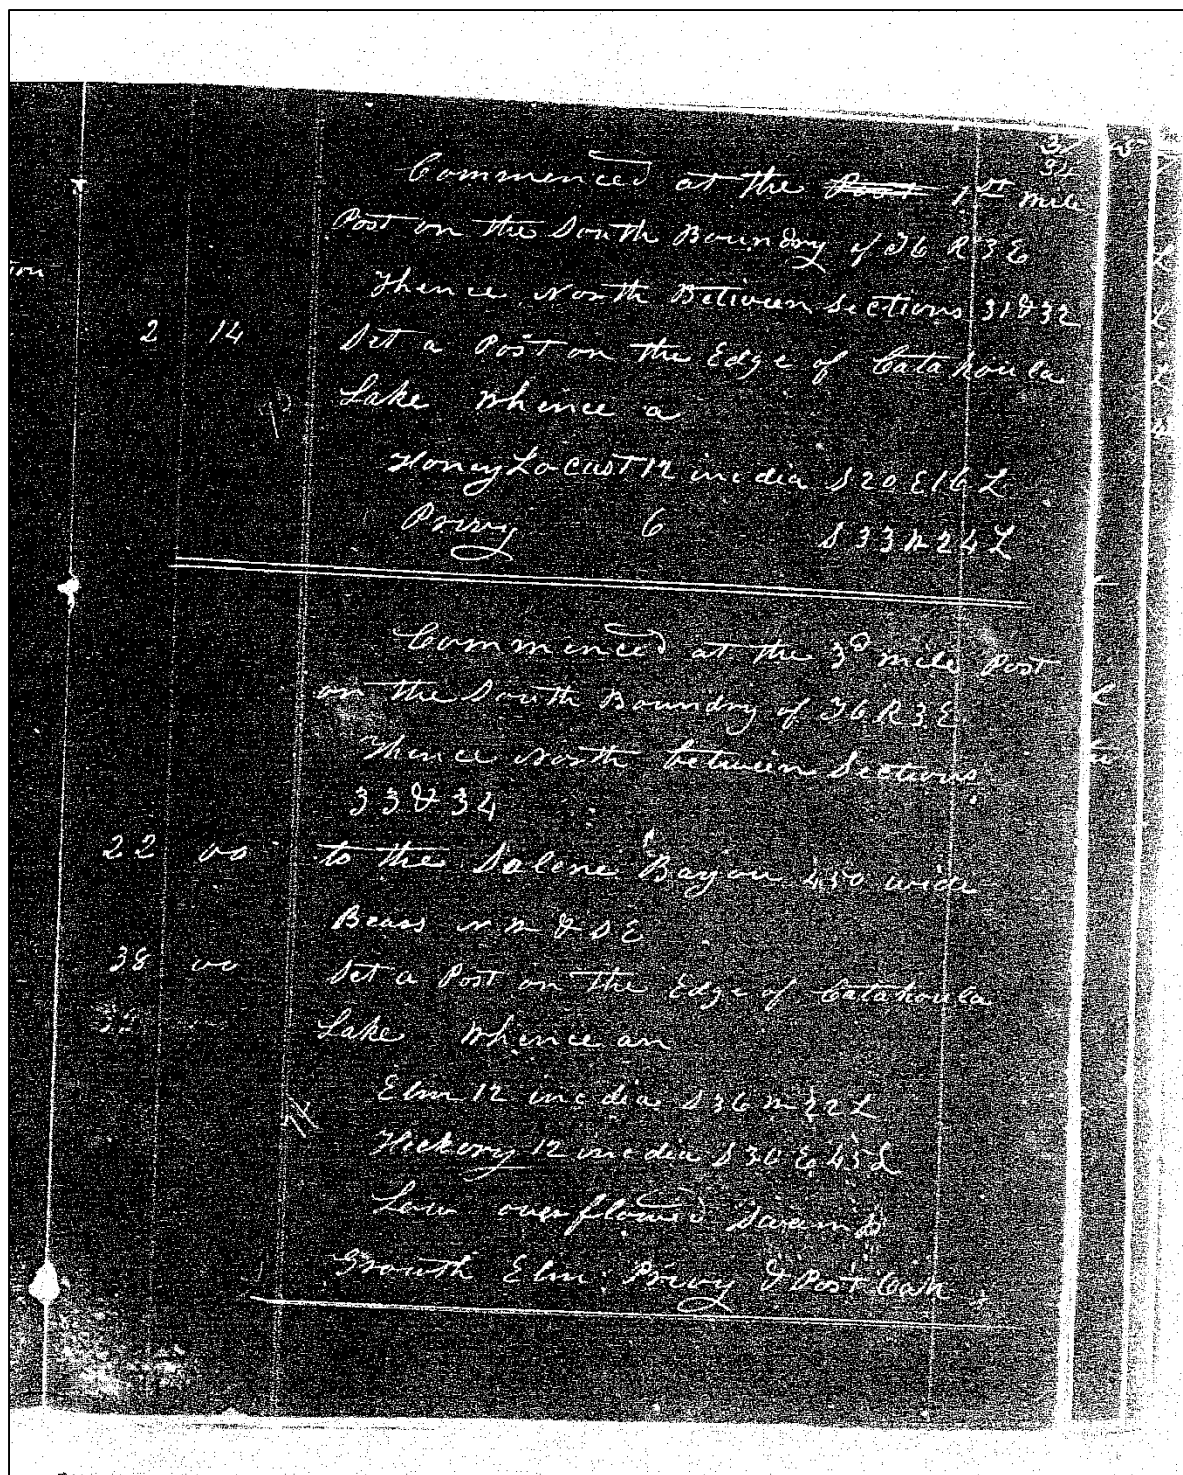 Commenced at the ~~Post~~ 1st mile
Post on the South Boundry of T6 R3E
Thence North Between sections 31 & 32
2 14 Set a Post on the Edge of Catahoula
Lake Whence a
Honey Locust 12 inc dia S 20 E 16 L
Privy 6 S 33 W 24 L
Commenced at the 3d mile Post
on the South Boundry of T6 R3E
Thence North between Sections
33 & 34
22 00 to the Saline Bayou 450 wide
Bears N W & S E
38 00 Set a Post on the Edge of Catahoula
Lake Whence an
Elm 12 inc dia S 36 W 22 L
Hickory 12 inc dia S 30 E 45 L
Low overflowed Swamp
Growth Elm Privy & Post Oak